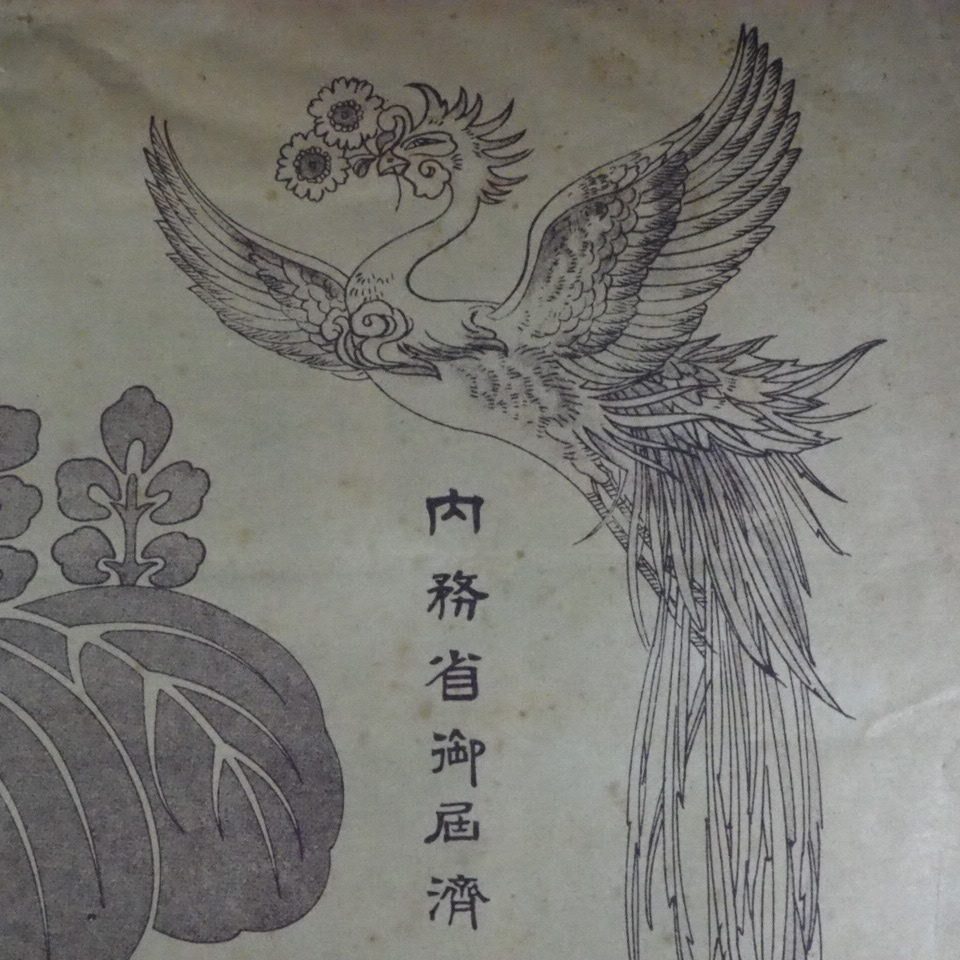 内務省御届濟